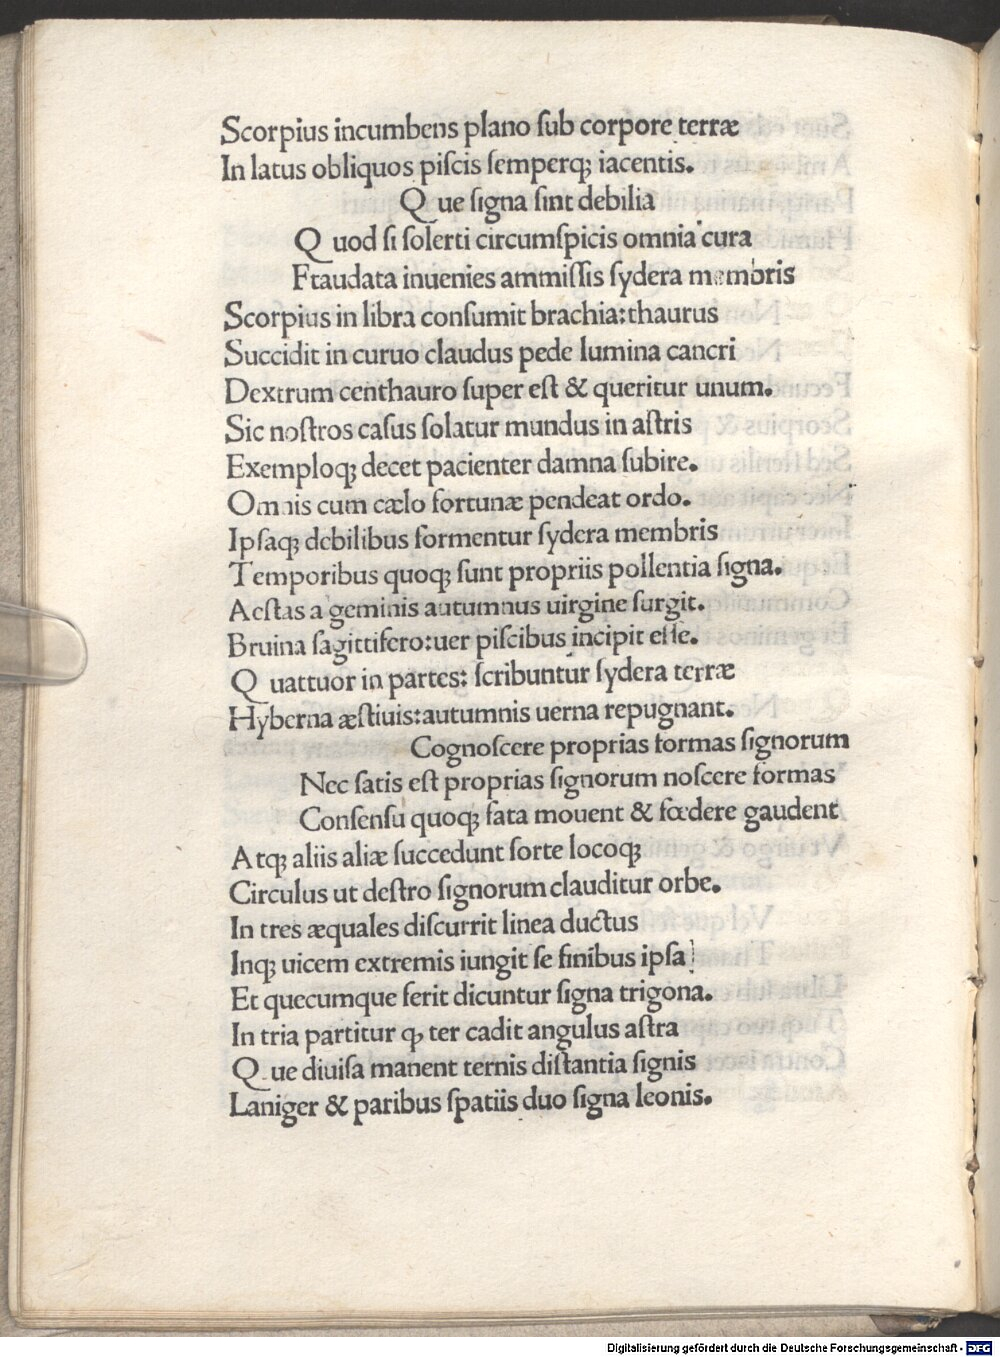 Scorpius incumbens plano ſub corpore terræ
In latus obliquos piſcis ſemperqꝫ iacentis.
Que ſigna ſint debilia
Quod ſi ſolerti circumſpicis omnia cura
Fraudata inuenies ammiſſis ſydera membris
Scorpius in libra conſumit brachia:thaurus
Succidit in curuo claudus pede lumina cancri
Dextrum centhauro ſuper eſt & queritur unum.
Sic noſtros caſus ſolatur mundus in aſtris
Exemploqꝫ decet pacienter damna ſubire.
Omnis cum cælo fortunæ pendeat ordo.
Ipſaqꝫ debilibus formentur ſydera membris
Temporibus quoqꝫ ſunt propriis pollentia ſigna.
Aeſtas a geminis autumnus uirgine ſurgit.
Bruina ſagittifero:uer piſcibus incipit eſſe.
Quattuor in partes: ſcribuntur ſydera terræ
Hyberna æſtiuis:autumnis uerna repugnant.
Cognoſcere proprias formas ſignorum
Nec ſatis eſt proprias ſignorum noſcere formas
Conſenſu quoqꝫ fata mouent & fœdere gaudent
Atqꝫ aliis aliæ ſuccedunt ſorte locoqꝫ
Circulus ut deſtro ſignorum clauditur orbe.
In tres æquales diſcurrit linea ductus
Inqꝫ uicem extremis iungit ſe finibus ipſa
Et quecumque ferit dicuntur ſigna trigona.
In tria partitur ꝙ ter cadit angulus aſtra
Que diuiſa manent ternis diſtantia ſignis
Laniger & paribus ſpatiis duo ſigna leonis.
Digitalisierung gefördert durch die Deutsche Forschungsgemeinschaft - DFG